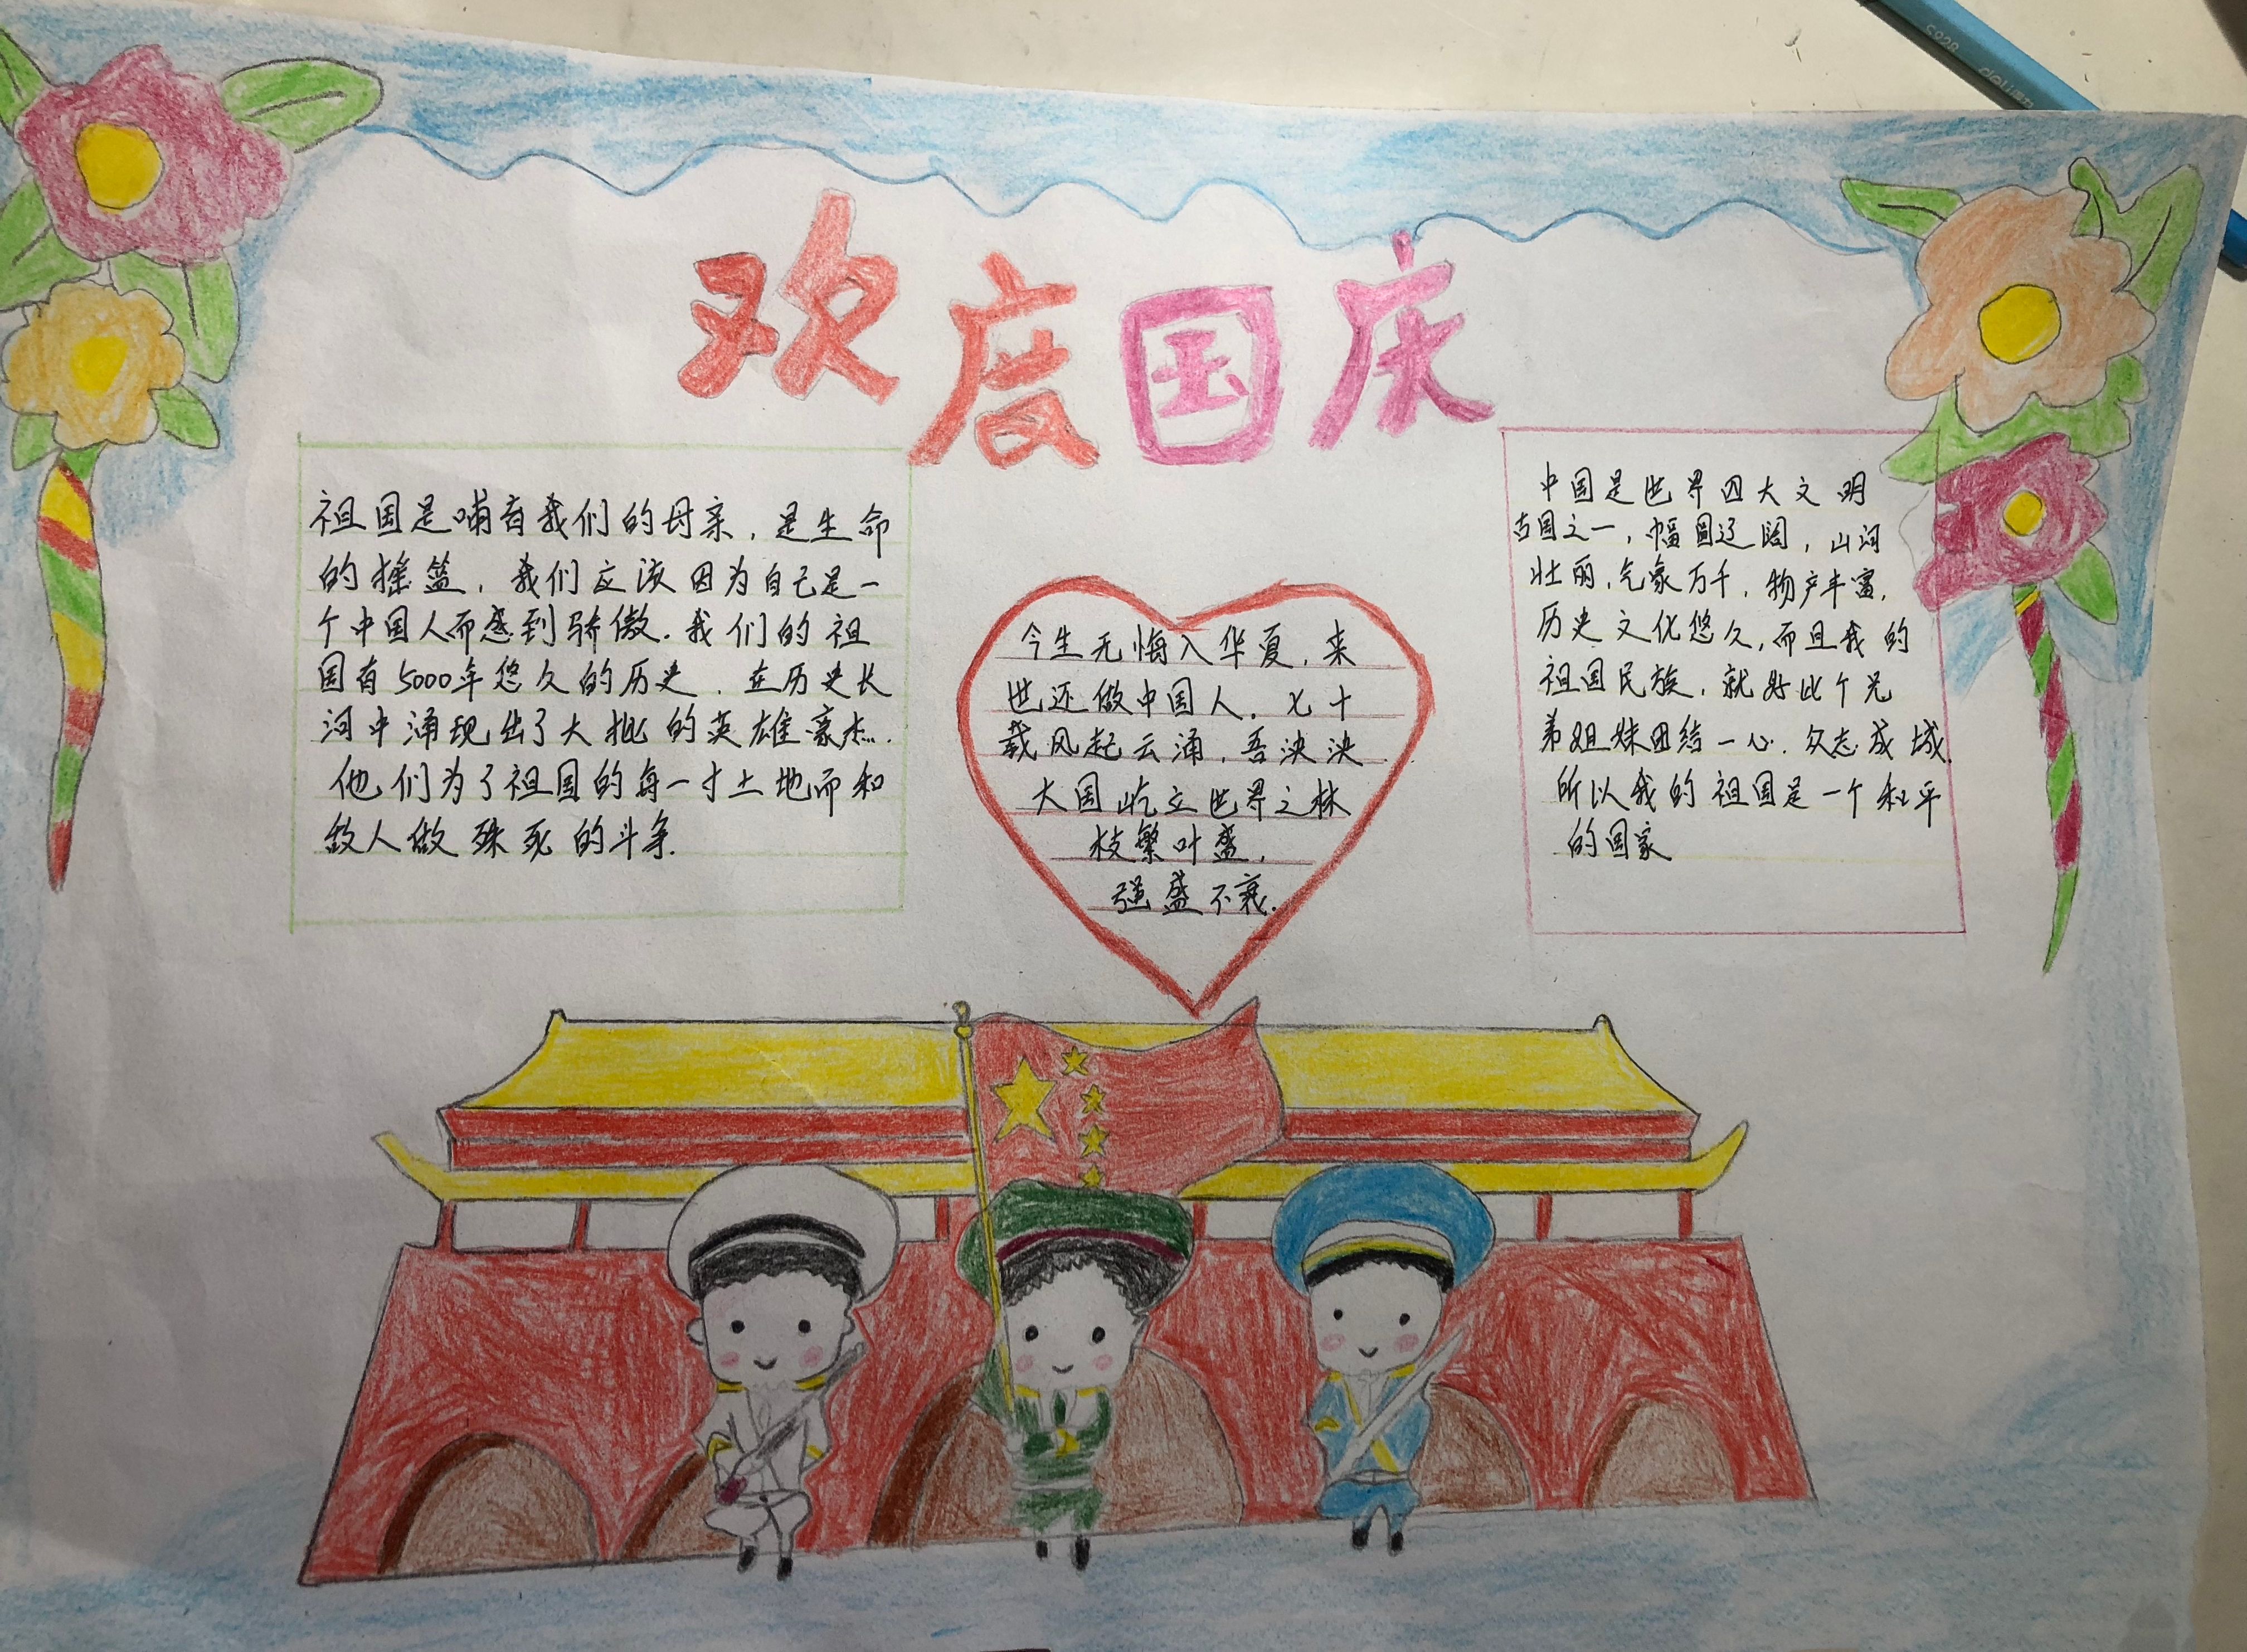 欢度国庆
祖国是哺育我们的母亲，是生命
的摇篮，我们应该因为自己是一
个中国人而感到骄傲．我们的祖
国有5000年悠久的历史．在历史长
河中涌现出了大批的英雄豪杰...
他们为了祖国的每一寸土地而和
敌人做殊死的斗争．
今生无悔入华夏，来
世还做中国人．七十
载风起云涌，吾泱泱
大国屹立世界之林
枝繁叶盛，
强盛不衰．
中国是世界四大文明
古国之一，幅圆辽阔，山河
壮丽，气象万千，物产丰富，
历史文化悠久，而且我的
祖国民族，就好比个兄
弟姐妹团结一心．众志成城．
所以我的祖国是一个和平
的国家
S928
deli